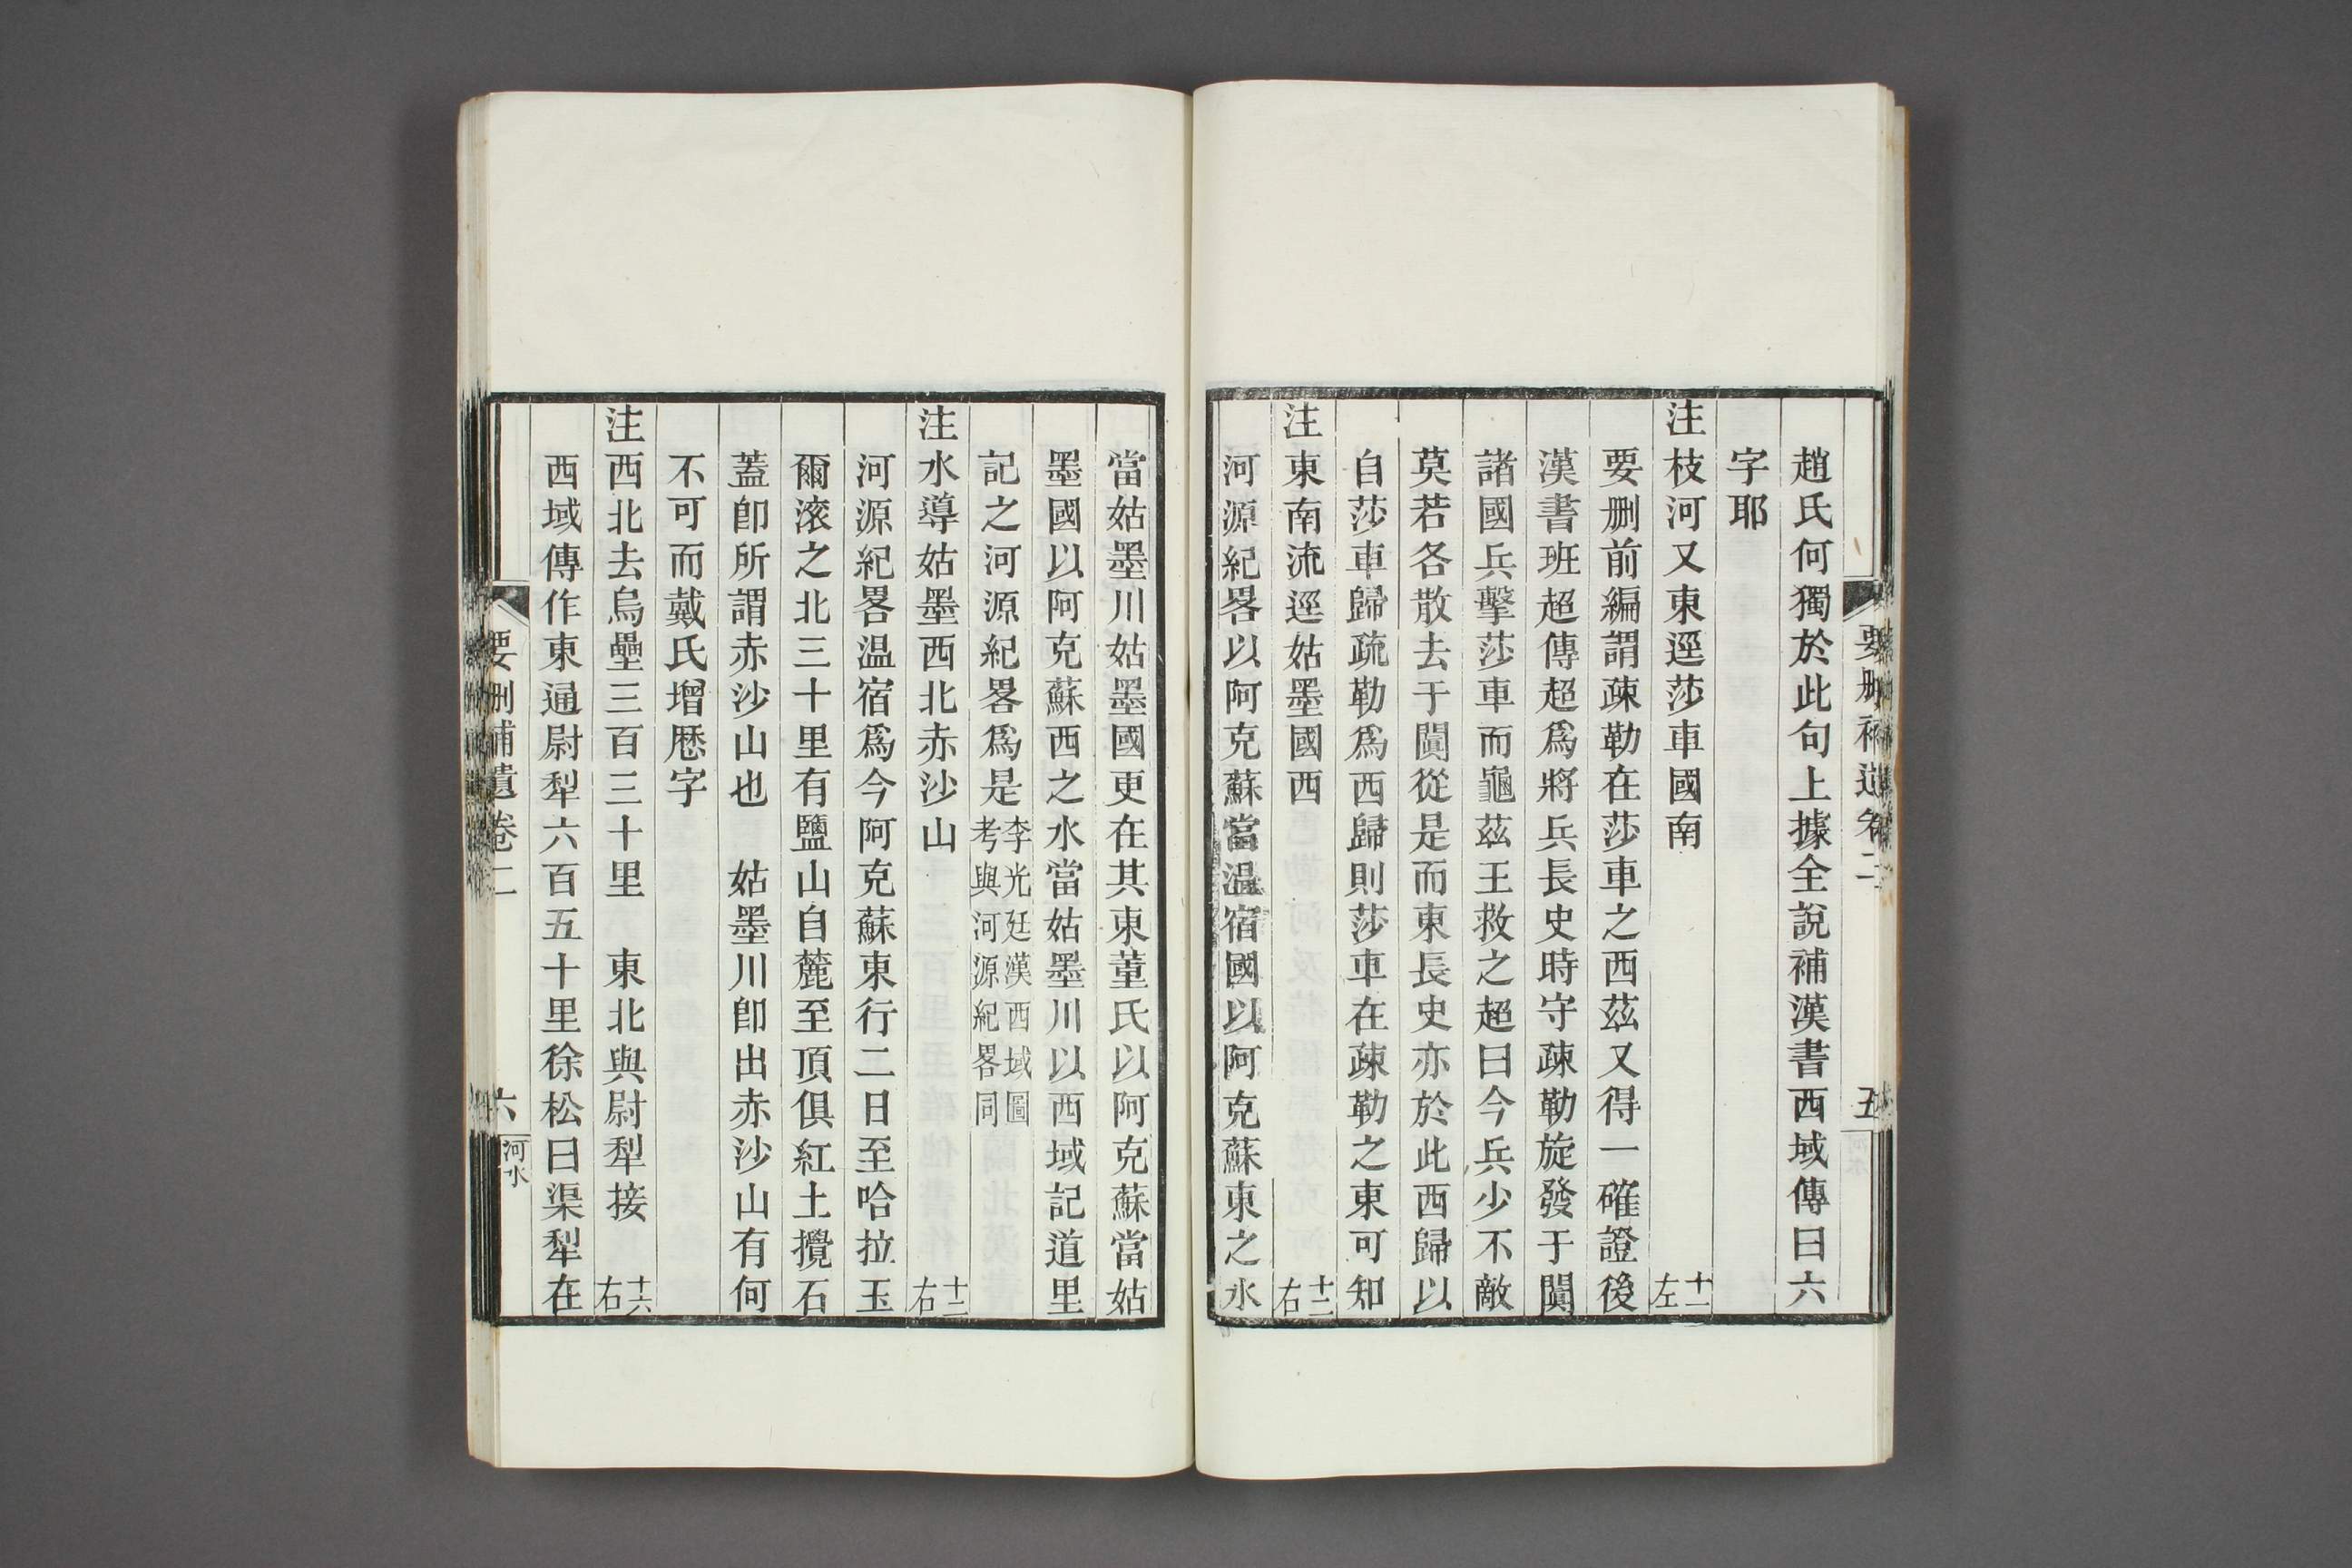 趙氏何獨於此句上據全說補漢書西域傳曰六
字耶
注枝河又東逕莎車國南 十一左
要删前編謂疎勒在莎車之西茲又得一確證後
漢書班超傳超爲將兵長史時守疎勒旋發于闐
諸國兵擊莎車而龜茲王救之超曰今兵少不敵
莫若各散去于闐從是而東長史亦於此西歸以
自莎車歸疏勒爲西歸則莎車在疎勒之東可知
注東南流逕姑墨國西 十二右
河源紀畧以阿克蘇當温宿國以阿克蘇東之水
要删補遺卷二
五
當姑墨川姑墨國更在其東董氏以阿克蘇當姑
墨國以阿克蘇西之水當姑墨川以西域記道里
記之河源紀畧爲是李光廷漢西域圖考與河源紀畧同
注水導姑墨西北赤沙山 十二右
河源紀畧温宿爲今阿克蘇東行二日至哈拉玉
爾滚之北三十里有鹽山自麓至頂俱紅土攪石
蓋卽所謂赤沙山也 姑墨川卽出赤沙山有何
不可而戴氏增歷字
注西北去烏壘三百三十里 東北與尉犁接 十六右
西域傳作東通尉犁六百五十里徐松曰渠犁在
要删補遺卷二
六
河水